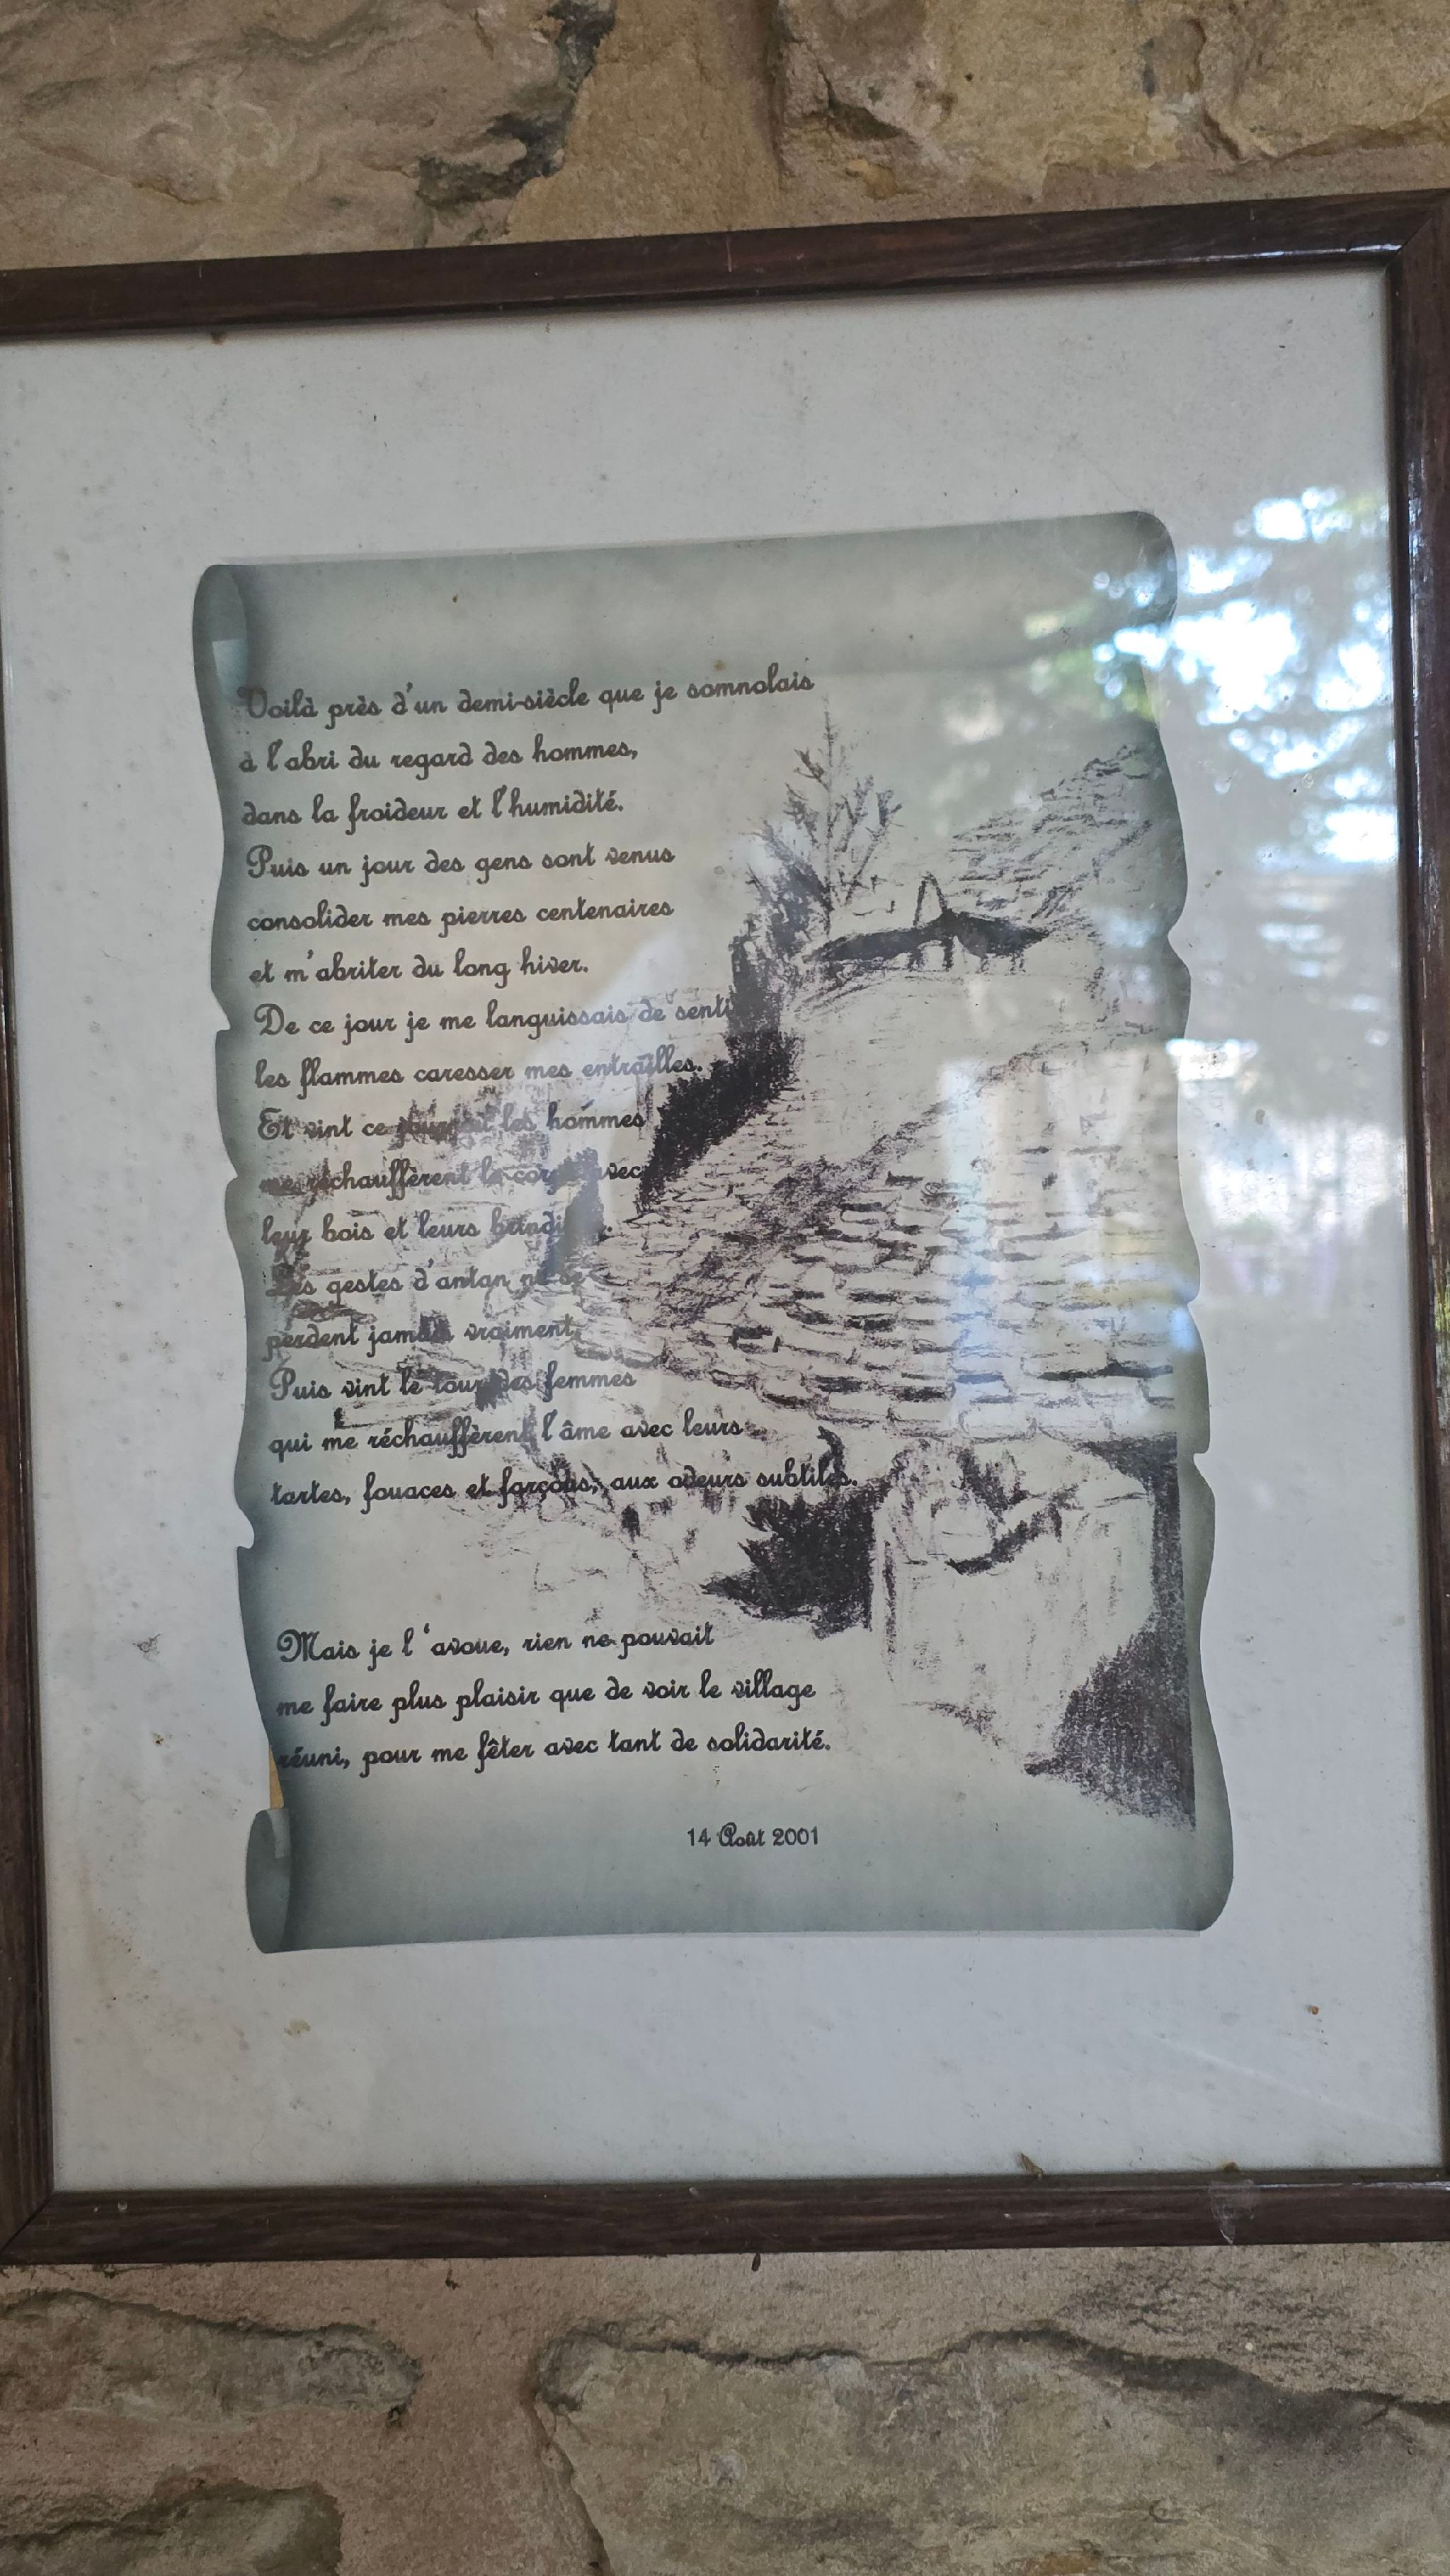 Voilà près d'un demi-siècle que je somnolais
à l'abri du regard des hommes,
dans la froideur et l'humidité.
Puis un jour des gens sont venus
consolider mes pierres centenaires
et m'abriter du long hiver.
De ce jour je me languissais de senti
les flammes caresser mes entrailles.
Et vint ce jour où les hommes
me réchauffèrent le corps avec
leur bois et leurs
Les gestes d'antan ne se
perdent jamais vraiment,
Puis vint le tour des femmes
qui me réchauffèrent l'âme avec leurs
tartes, fouaces et farçous, aux odeurs subtiles.
Mais je l'avoue, rien ne pouvait
me faire plus plaisir que de voir le village
réuni, pour me fêter avec tant de solidarité.
14 Août 2001